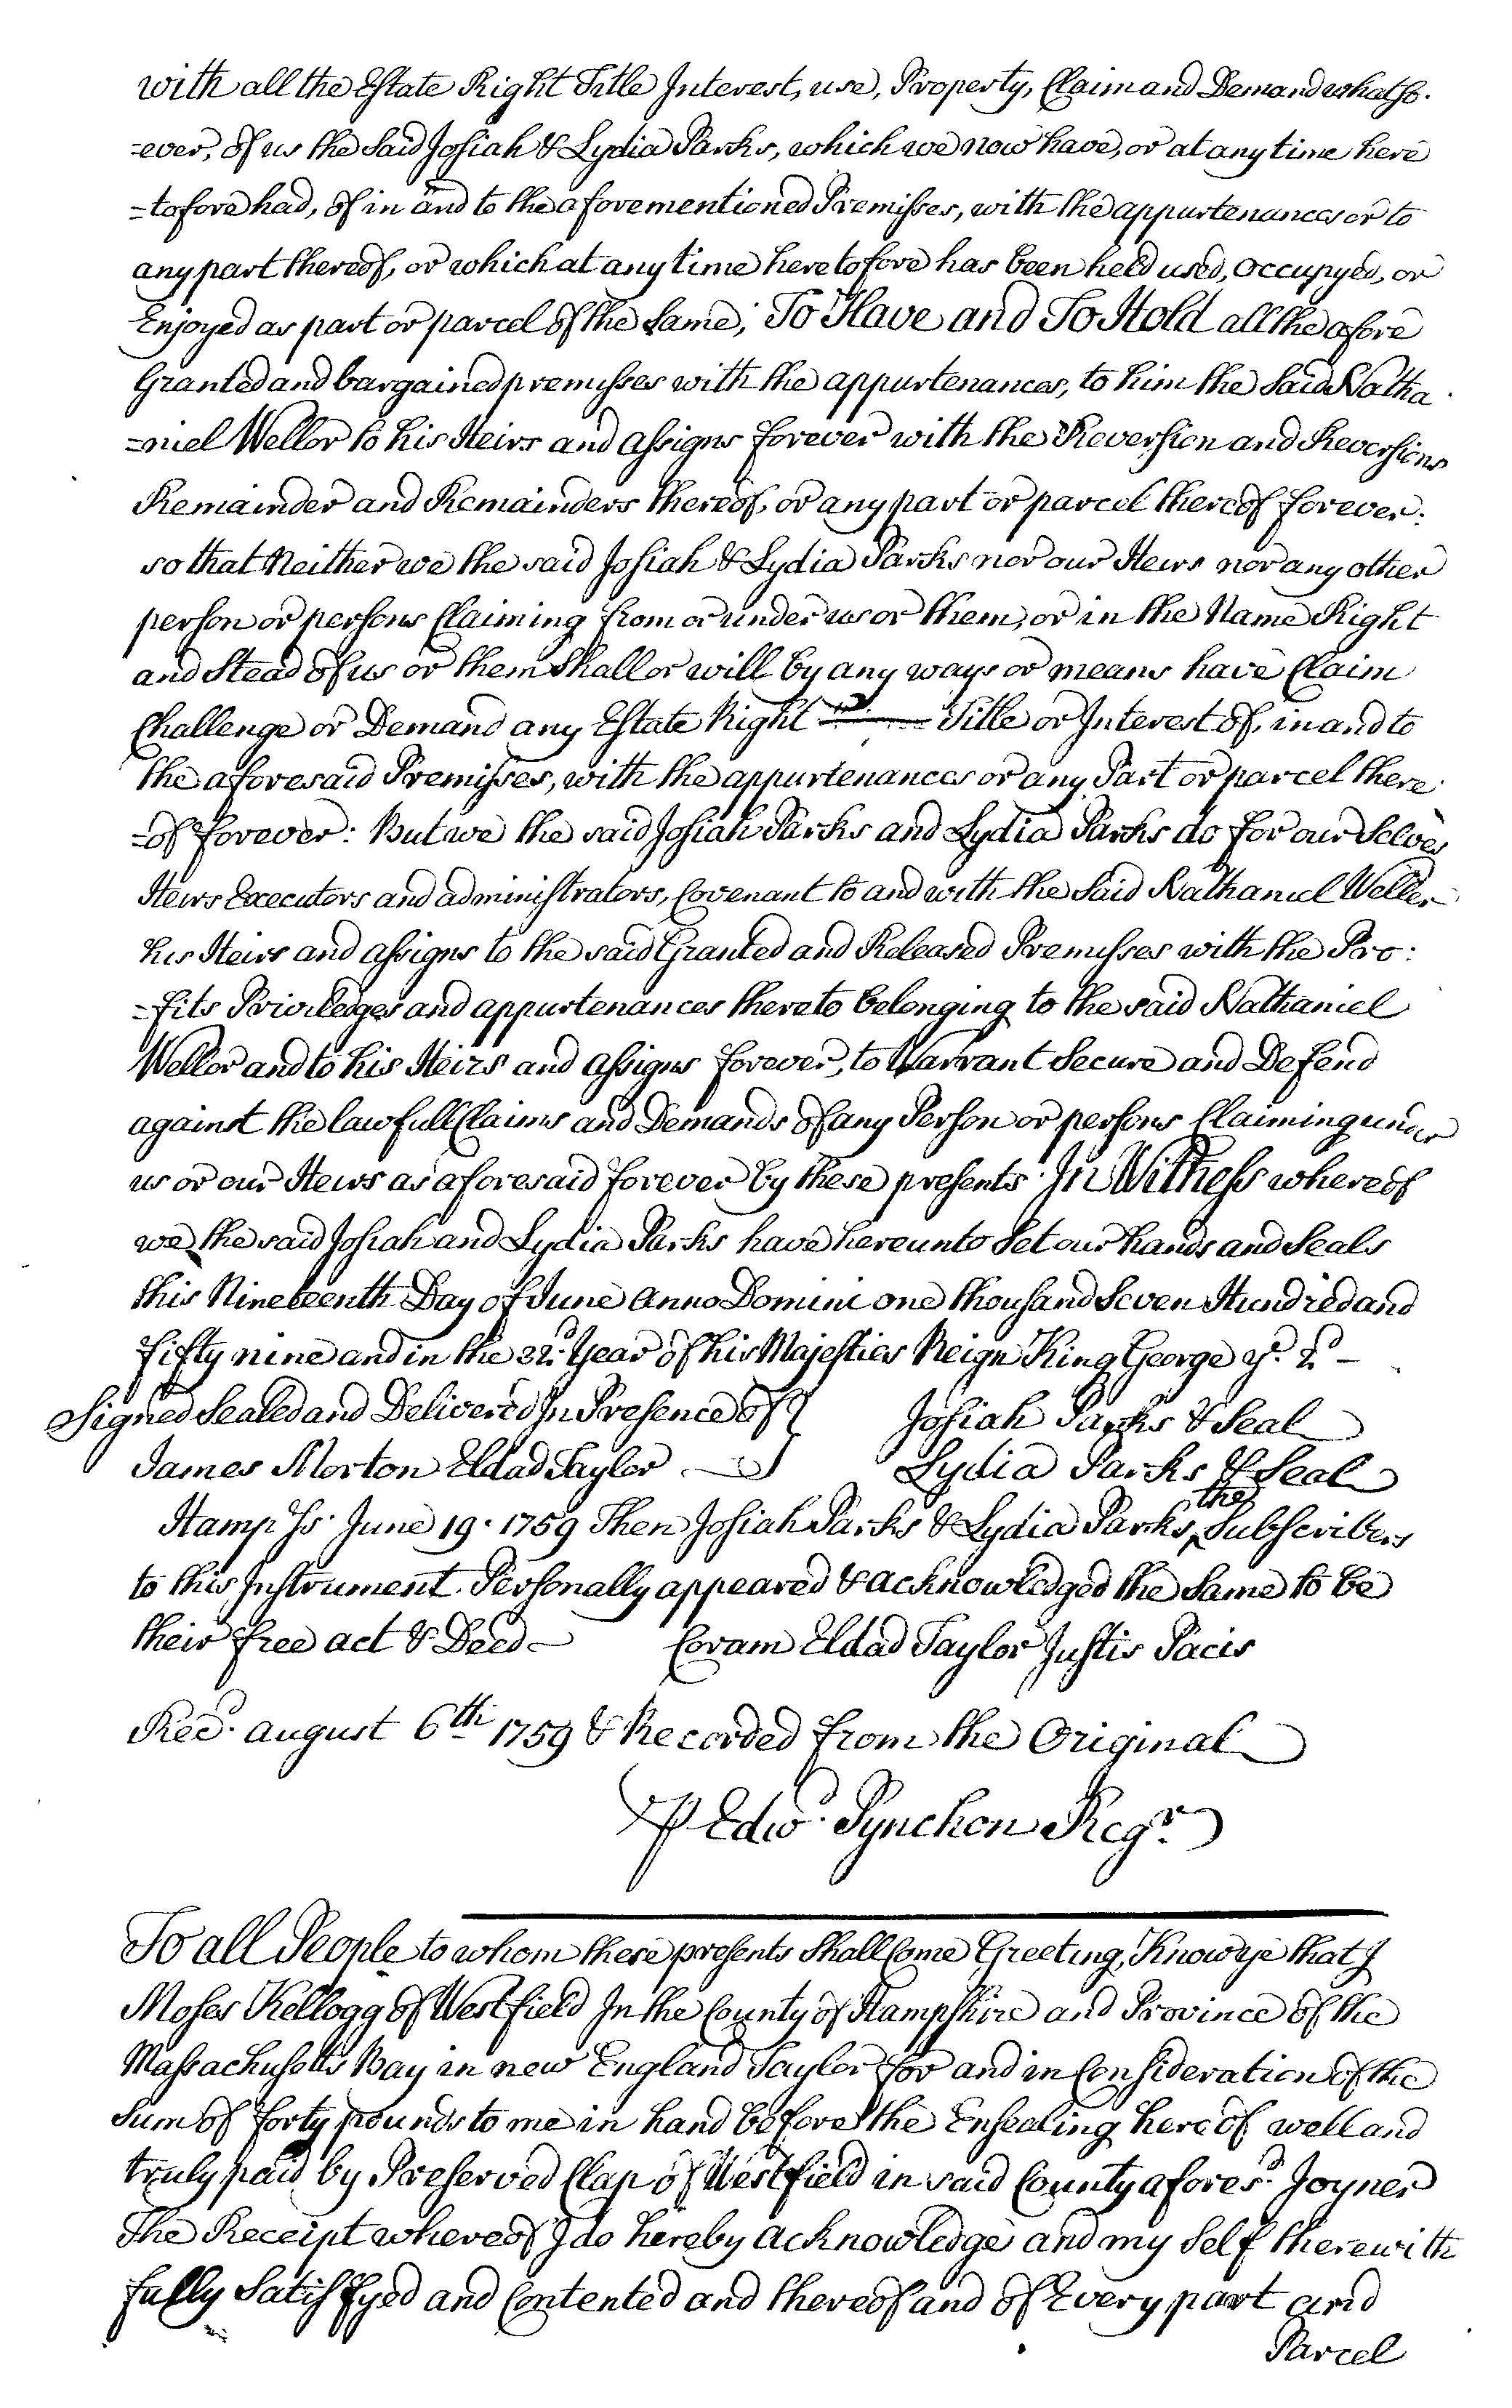 with all the Estate Right Title Interest, use, Property, Claim and Demand whatso-
=ever, of us the Said Josiah & Lydia Parks, which we now have, or at any time here
=tofore had, of in and to the aforementioned Premisses, with the appurtenances or to
any part thereof, or which at any time heretofore has been held used, occupyed, or
Enjoyed as part or parcel of the Same; To Have and To Hold all the afore
Granted and bargained premisses with the appurtenances, to him the Said Natha-
=niel Weller to his Heirs and assigns forever with the Reversion and Reversions
Remainder and Remainders thereof, or any part or parcel thereof forever:
so that Neither we the said Josiah & Lydia Parks nor our Heirs nor any other
person or persons Claiming from or under us or them, or in the Name Right
and Stead of us or them Shall or will by any ways or means have Claim
Challenge or Demand any Estate Right Title or Interest of, in and to
the aforesaid Premisses, with the appurtenances or any Part or parcel there
=of forever: But we the said Josiah Parks and Lydia Parks do for our Selves
Heirs Executors and administrators, Covenant to and with the Said Nathaniel Weller
his Heirs and assigns to the said Granted and Released Premisses with the Pro:
=fits Priviledges and appurtenances thereto belonging to the said Nathaniel
Weller and to his Heirs and assigns forever, to Warrant Secure and Defend
against the lawfull Claims and Demands of any Person or persons Claiming under
us or our Heirs as aforesaid forever by these presents. In Witness whereof
we the said Josiah and Lydia Parks have hereunto Set our hands and Seals
this Nineteenth Day of June Anno Domini one thousand Seven Hundred and
fifty nine and in the 32d. Year of his Majesties Reign King George ye. 2d. –
Signed Sealed and Delivered In Presence of } Josiah Parks & Seal
James Morton Eldad Taylor Lydia Parks & Seal
Hamp Ss. June 19. 1759 Then Josiah Parks & Lydia Parks the Subscribers
to this Instrument Personally appeared & acknowledged the Same to be
their free act & Deed – Coram Eldad Taylor Justis Pacis
Recd. august 6th 1759 & Recorded from the Original
⅌ Edwd. Pynchon Regr.
To all People to whom these presents Shall Come Greeting, Know ye that I
Moses Kellogg of Westfield In the County of Hampshire and Province of the
Massachusetts Bay in new England Taylor for and in Consideration of the
Sum of forty pounds to me in hand before the Ensealing hereof well and
truly paid by Preserved Clap of Westfield in said County afores.d Joyner
The Receipt whereof I do hereby acknowledge and my Self therewith
fully Satisfyed and Contented and thereof and of Every part and
Parcel